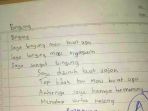 Bingung
Bingung
Saya bingung mau buat apa
Saya bingung mau ngapain
Saya sangat bingung
Saya disuruh buat sajak
Tapi tidak tau mau buat apa
Akhirnya saya hanya termenung
Menatap